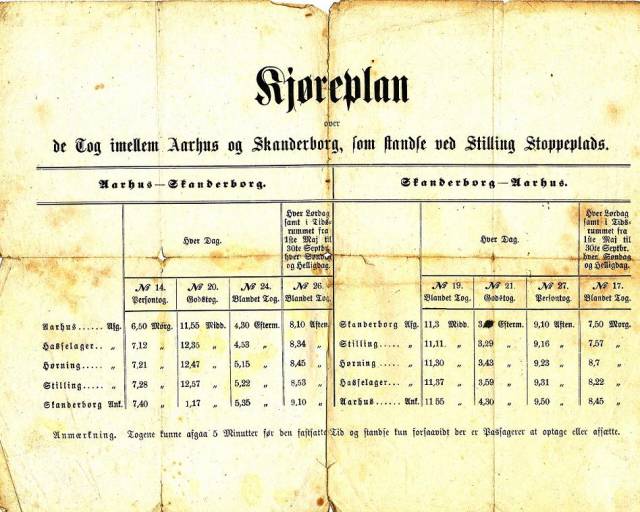 Kjøreplan
over
de Tog imellem Aarhus og Skanderborg, som standse ved Stilling Stoppeplads.
Aarhus—Skanderborg. Skanderborg—Aarhus.
Hver Dag. Hver Lørdag samt i Tidsrummet fra 1ste Maj til 30te Septbr. hver Søndag og Helligdag. Hver Dag. Hver Lørdag samt i Tidsrummet fra 1ste Maj til 30te Septbr. hver Søndag og Helligdag.
№ 14. Persontog. № 20. Godstog. № 24. Blandet Tog. № 26. Blandet Tog. № 19. Blandet Tog. № 21. Godstog. № 27. Persontog. № 17. Blandet Tog.
Aarhus...... Afg. 6,50 Morg. 11,55 Midd. 4,30 Efterm. 8,10 Aften. Skanderborg Afg. 11,3 Midd. Efterm. 9,10 Aften. 7,50 Morg.
Hasselager.. „ 7,12 „ 12,35 „ 4,53 „ 8,34 „ Stilling..... „ 11,11. „ 3,29 „ 9,16 „ 7,57 „
Hørning..... „ 7,21 „ 12,47 „ 5,15 „ 8,45 „ Hørning.... „ 11,30 „ 3,43 „ 9,23 „ 8,7 „
Stilling..... „ 7,28 „ 12,57 „ 5,22 „ 8,53 „ Hasselager... „ 11,37 „ 3,59 „ 9,31 „ 8,22 „
Skanderborg Ank. 7,40 „ 1,17 „ 5,35 „ 9,10 „ Aarhus..... Ank. 11 55 „ 4,30 „ 9,50 „ 8,45 „
Anmærkning. Togene kunne afgaa 5 Minutter før den fastsatte Tid og standse kun forsaavidt der er Passagerer at optage eller afsætte.